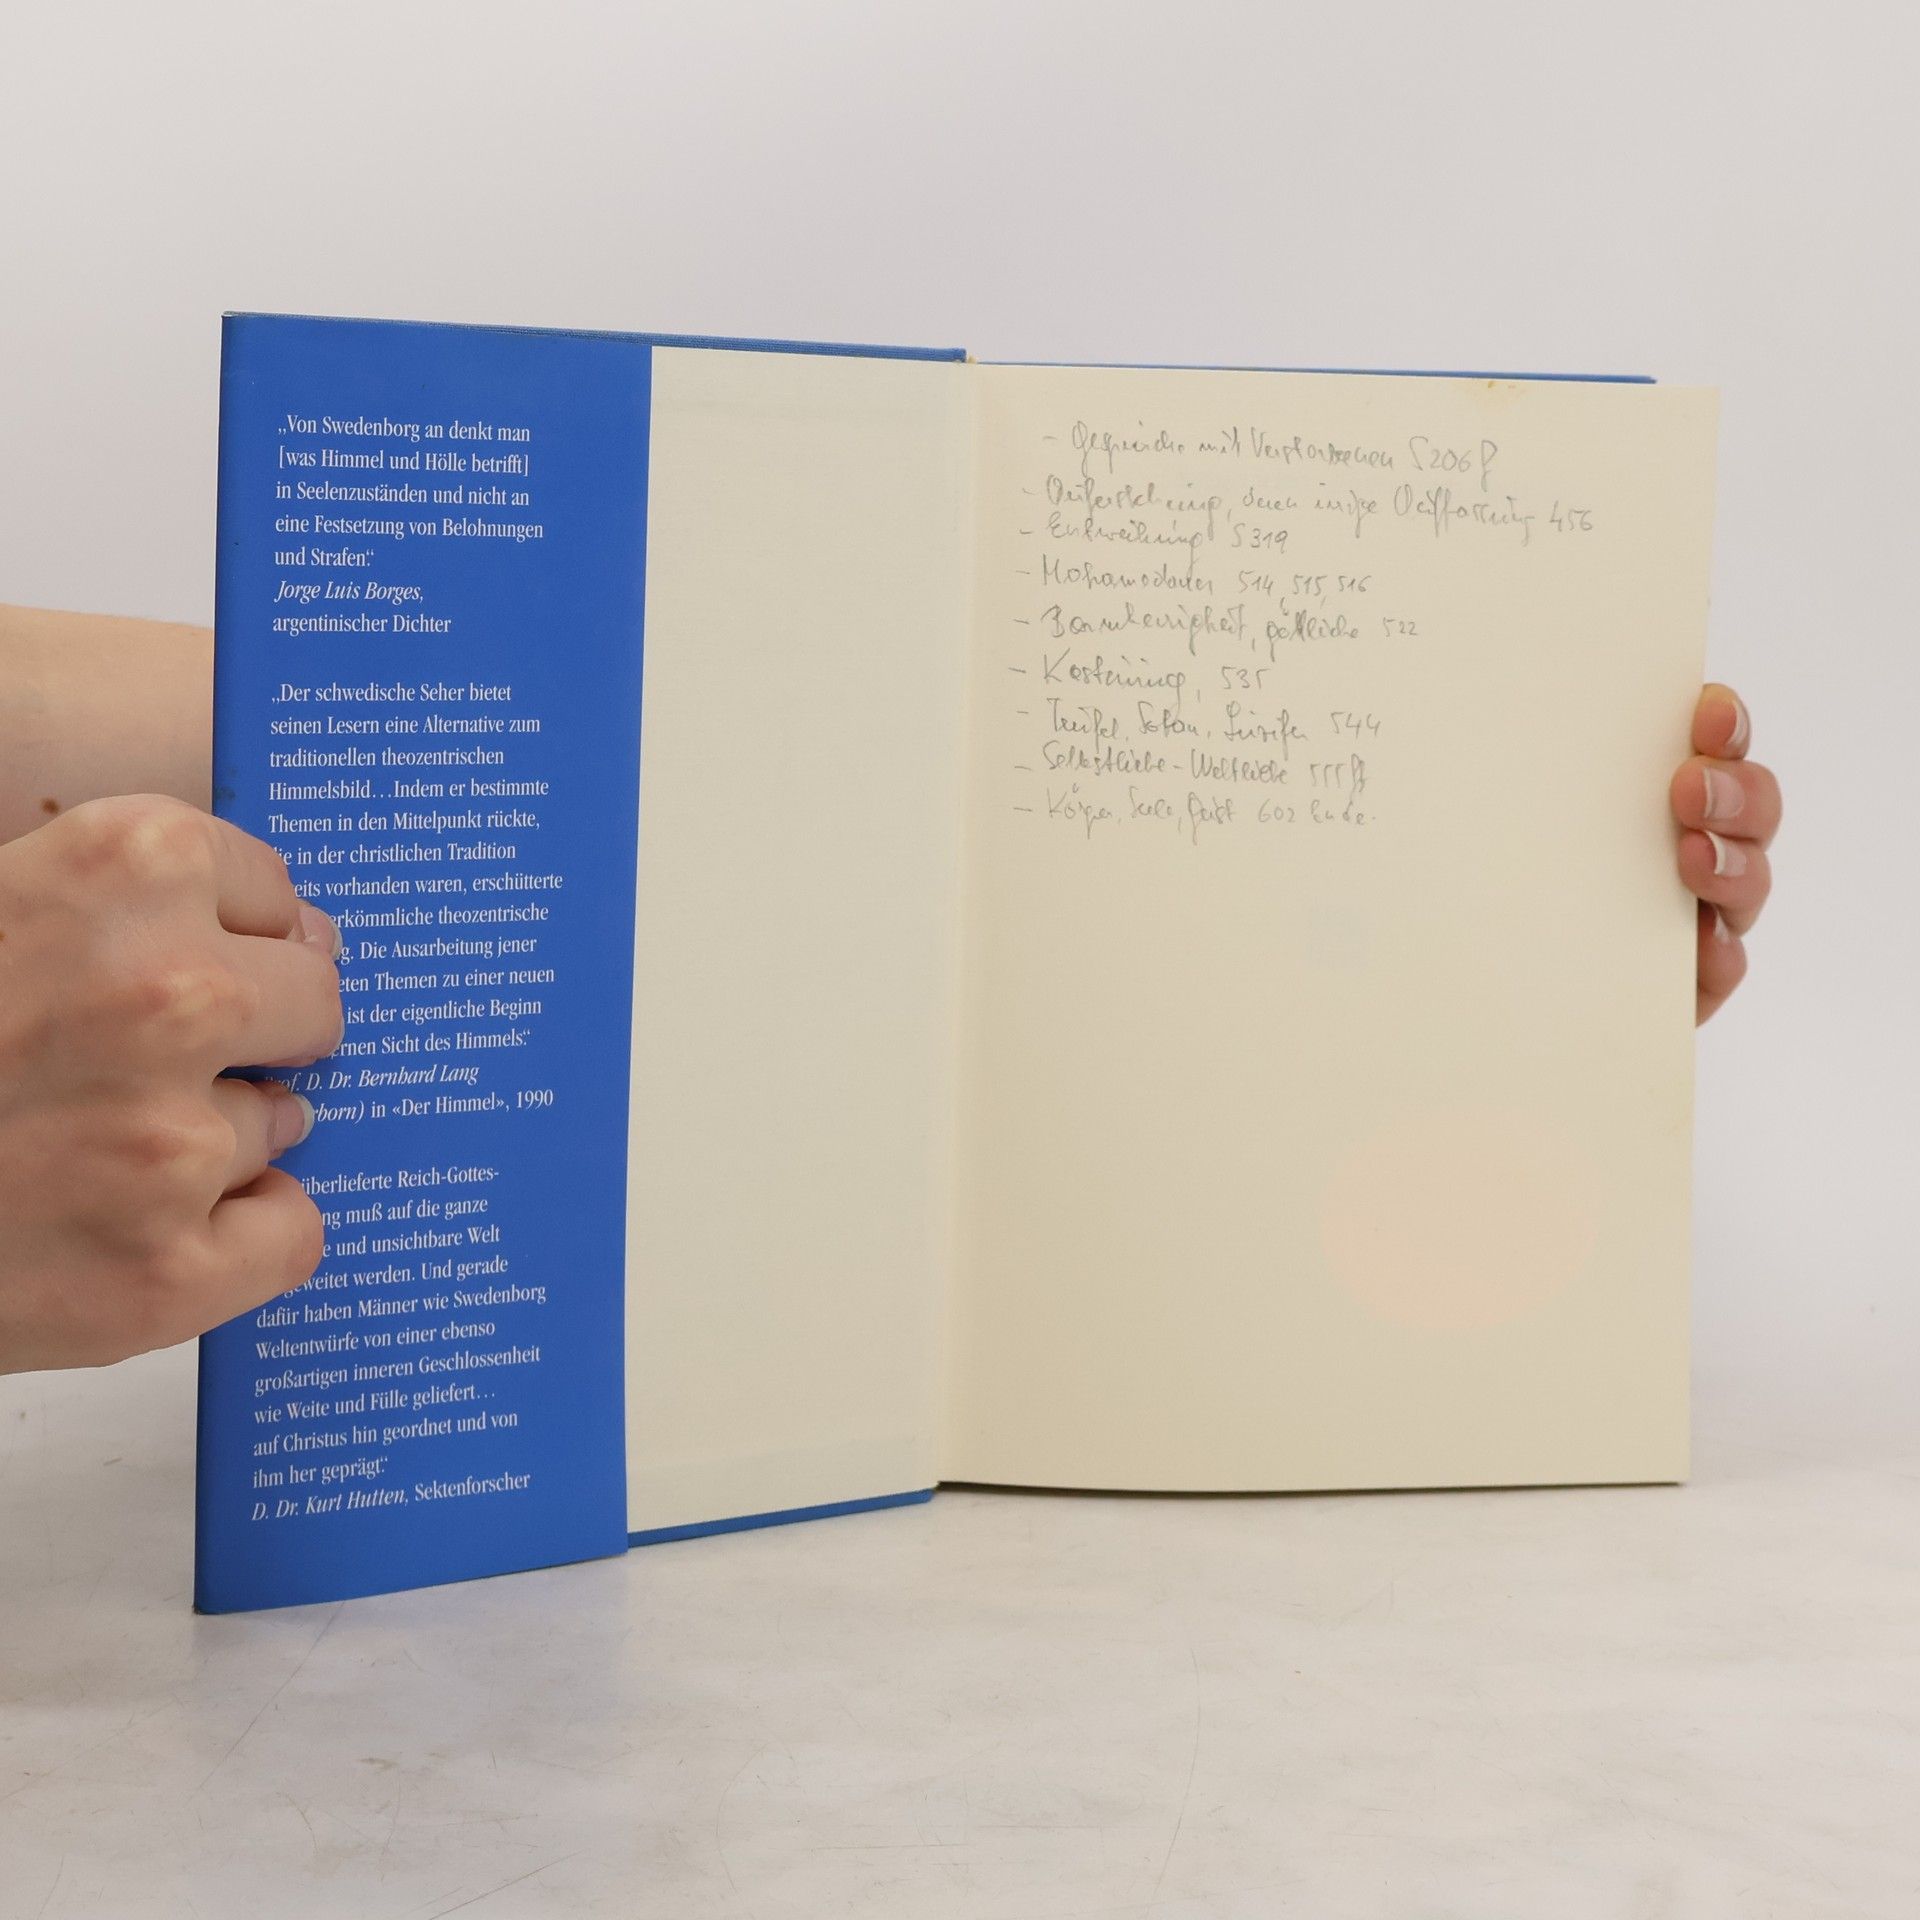 „Von Swedenborg an denkt man
[was Himmel und Hölle betrifft]
in Seelenzuständen und nicht an
eine Festsetzung von Belohnungen
und Strafen.“
Jorge Luis Borges,
argentinischer Dichter
„Der schwedische Seher bietet
seinen Lesern eine Alternative zum
traditionellen theozentrischen
Himmelsbild...Indem er bestimmte
Themen in den Mittelpunkt rückte,
in der christlichen Tradition
vorhanden waren, erschütterte
theozentrische
Die Ausarbeitung jener
Themen zu einer neuen
ist der eigentliche Beginn
Sicht des Himmels.“
D. Dr. Bernhard Lang
in «Der Himmel», 1990
überlieferte Reich-Gottes-
muß auf die ganze
und unsichtbare Welt
werden. Und gerade
dafür haben Männer wie Swedenborg
Weltentwürfe von einer ebenso
großartigen inneren Geschlossenheit
wie Weite und Fülle geliefert...
auf Christus hin geordnet und von
ihm her geprägt.“
D. Dr. Kurt Hutten, Sektenforscher
- Gespräche mit Verstorbenen S 206 f
- Auferstehung, Auffassung 456
- Entweihung S 319
- Mohamedaner 514, 515, 516
- Barmherzigkeit, göttliche 522
- 535
- Teufel, Satan, Luzifer 544
- Selbstliebe - Weltliebe 555 ff
- Körper, Seele, Geist 602 Ende.